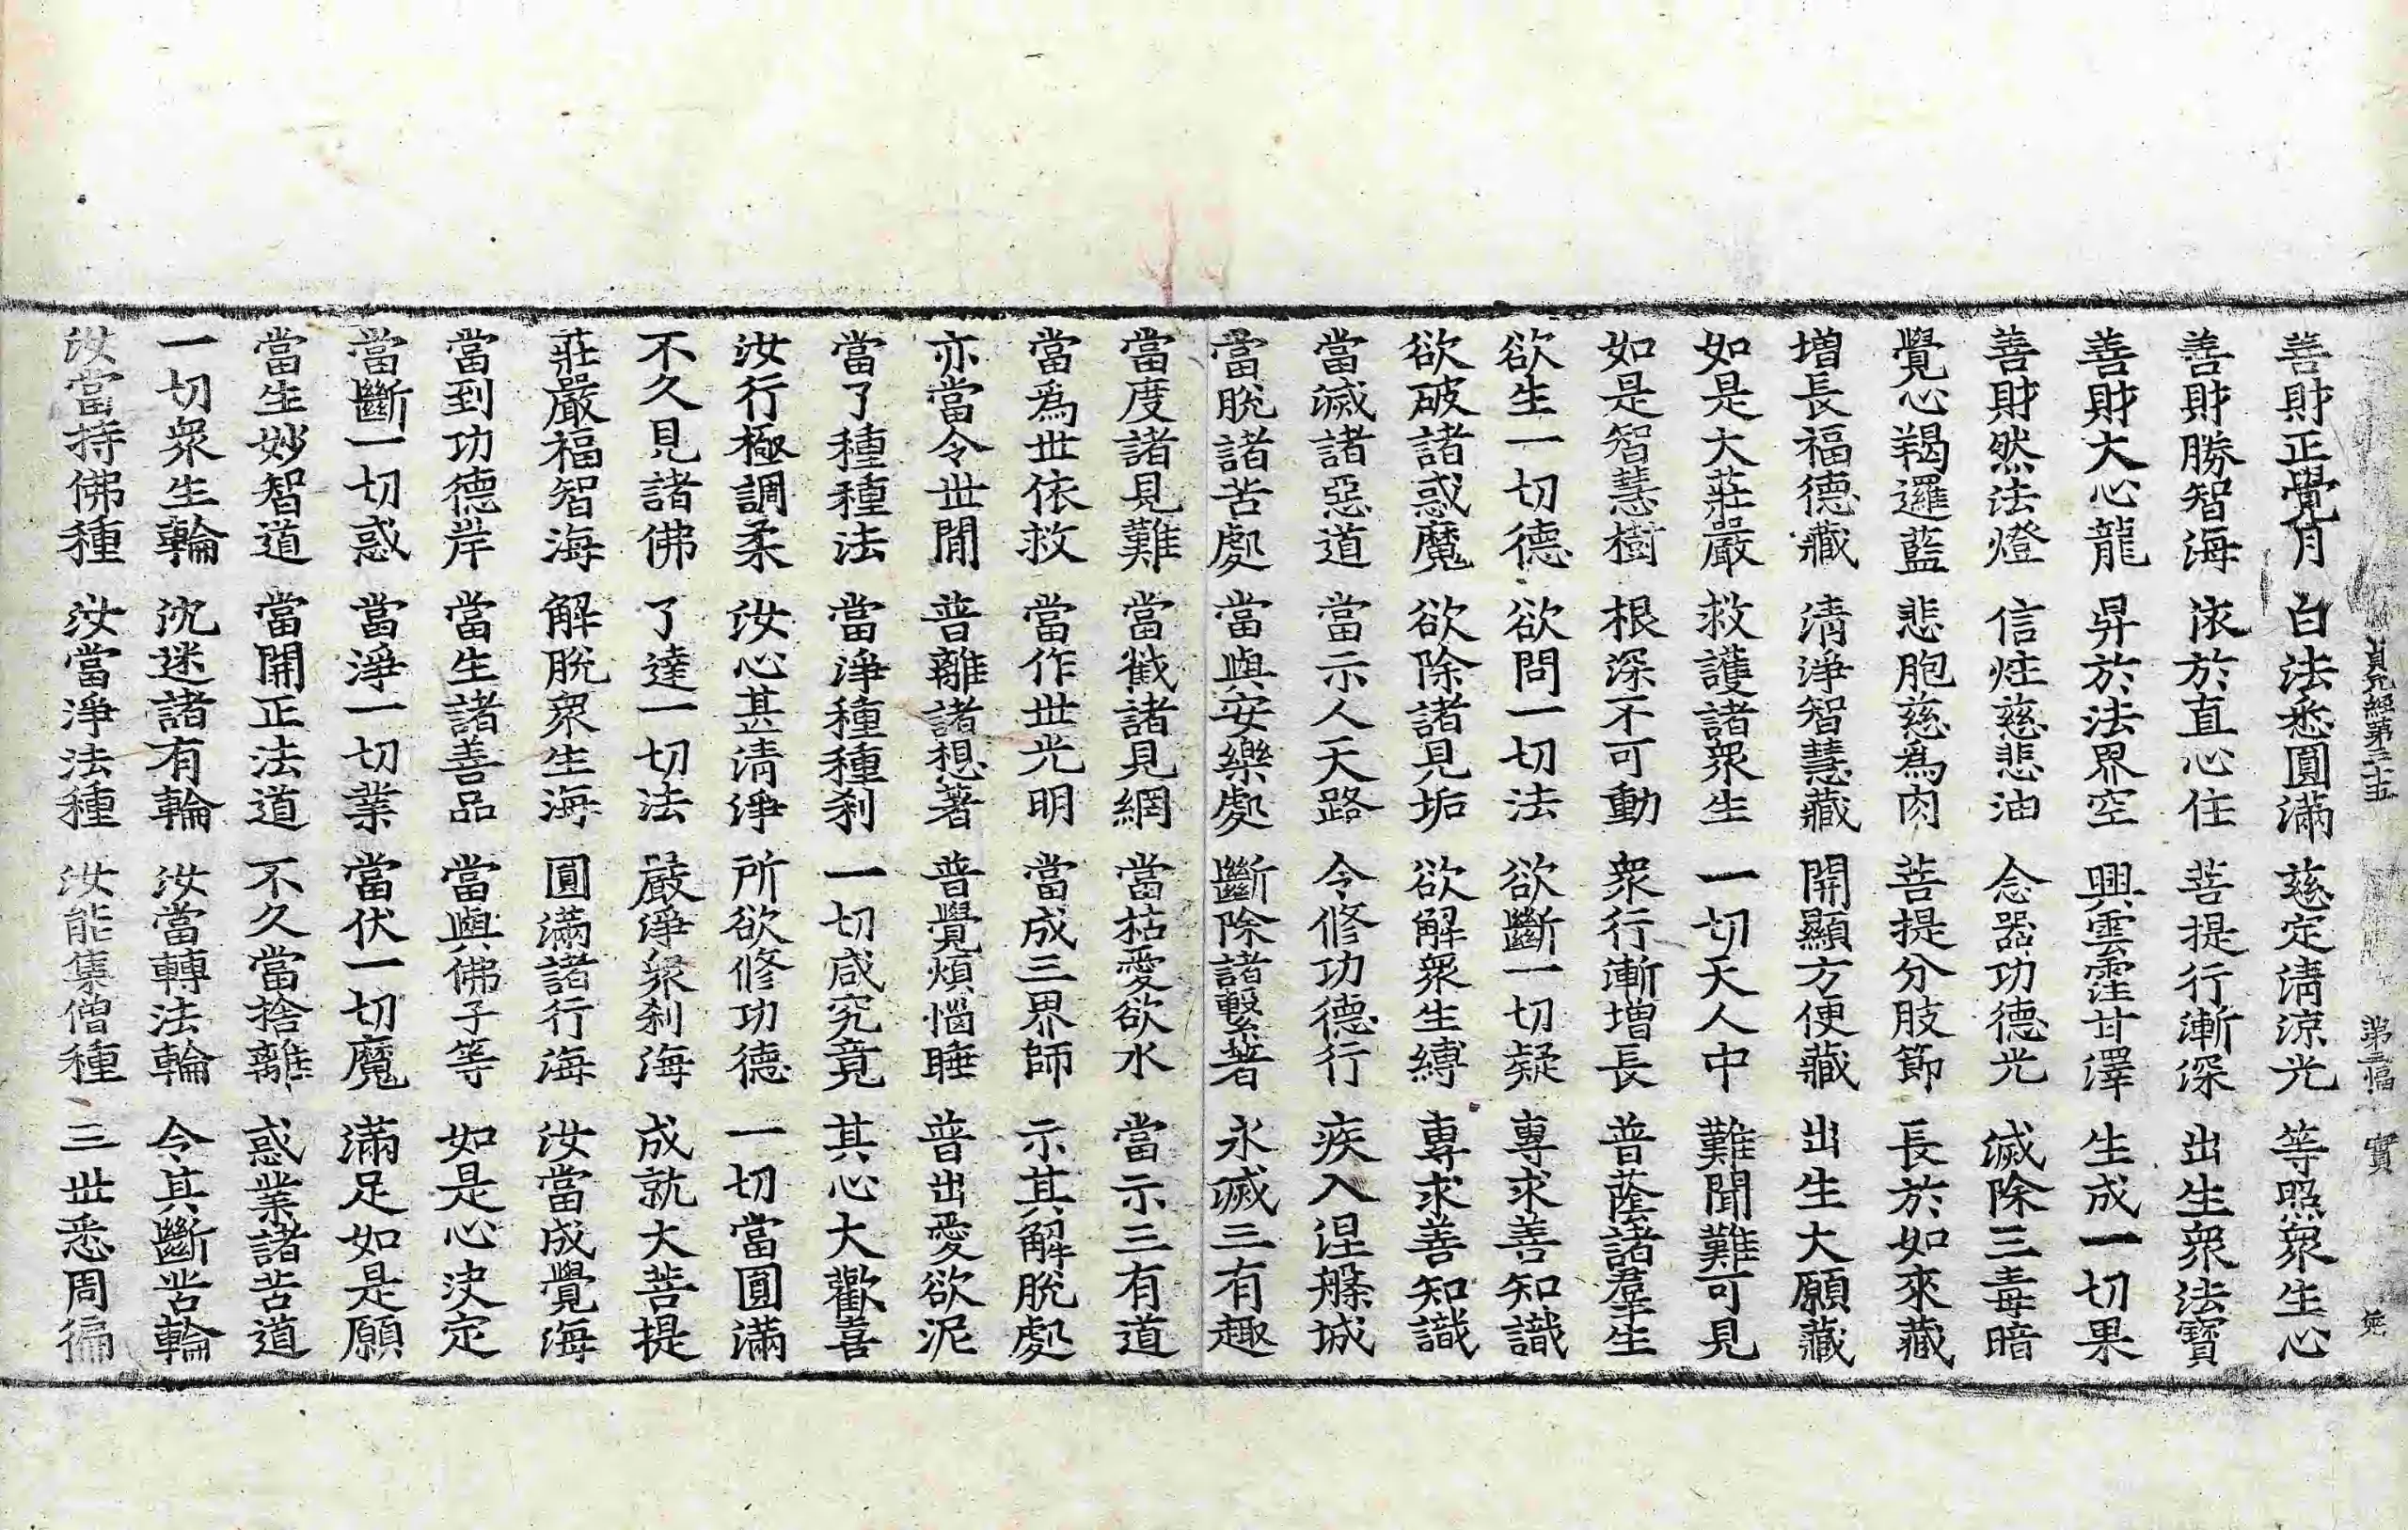 貞元經第三十五 第二幅 實
善財正覺月 白法悉圓滿 慈定淸涼光 等照衆生心
善財勝智海 依於直心住 菩提行漸深 出生衆法寶
善財大心龍 昇於法界空 興雲霔甘澤 生成一切果
善財然法燈 信炷慈悲油 念器功德光 滅除三毒暗
覺心羯邏藍 悲胞慈爲肉 菩提分肢節 長於如來藏
增長福德藏 淸淨智慧藏 開顯方便藏 出生大願藏
如是大莊嚴 救護諸衆生 一切天人中 難聞難可見
如是智慧樹 根深不可動 衆行漸增長 普蔭諸羣生
欲生一切德 欲問一切法 欲斷一切疑 專求善知識
欲破諸惑魔 欲除諸見垢 欲解衆生縛 專求善知識
當滅諸惡道 當示人天路 令修功德行 疾入涅槃城
當脫諸苦處 當與安樂處 斷除諸繫著 永滅三有趣
當度諸見難 當截諸見網 當枯愛欲水 當示三有道
當爲世依救 當作世光明 當成三界師 示其解脫處
亦當令世間 普離諸想著 普覺煩惱睡 普出愛欲泥
當了種種法 當淨種種刹 一切咸究竟 其心大歡喜
汝行極調柔 汝心甚淸淨 所欲修功德 一切當圓滿
不久見諸佛 了達一切法 嚴淨衆刹海 成就大菩提
莊嚴福智海 解脫衆生海 圓滿諸行海 汝當成覺海
當到功德岸 當生諸善品 當與佛子等 如是心決定
當斷一切惑 當淨一切業 當伏一切魔 滿足如是願
當生妙智道 當開正法道 不久當捨離 惑業諸苦道
一切衆生輪 沈迷諸有輪 汝當轉法輪 令其斷苦輪
汝當持佛種 汝當淨法種 汝能集僧種 三世悉周徧